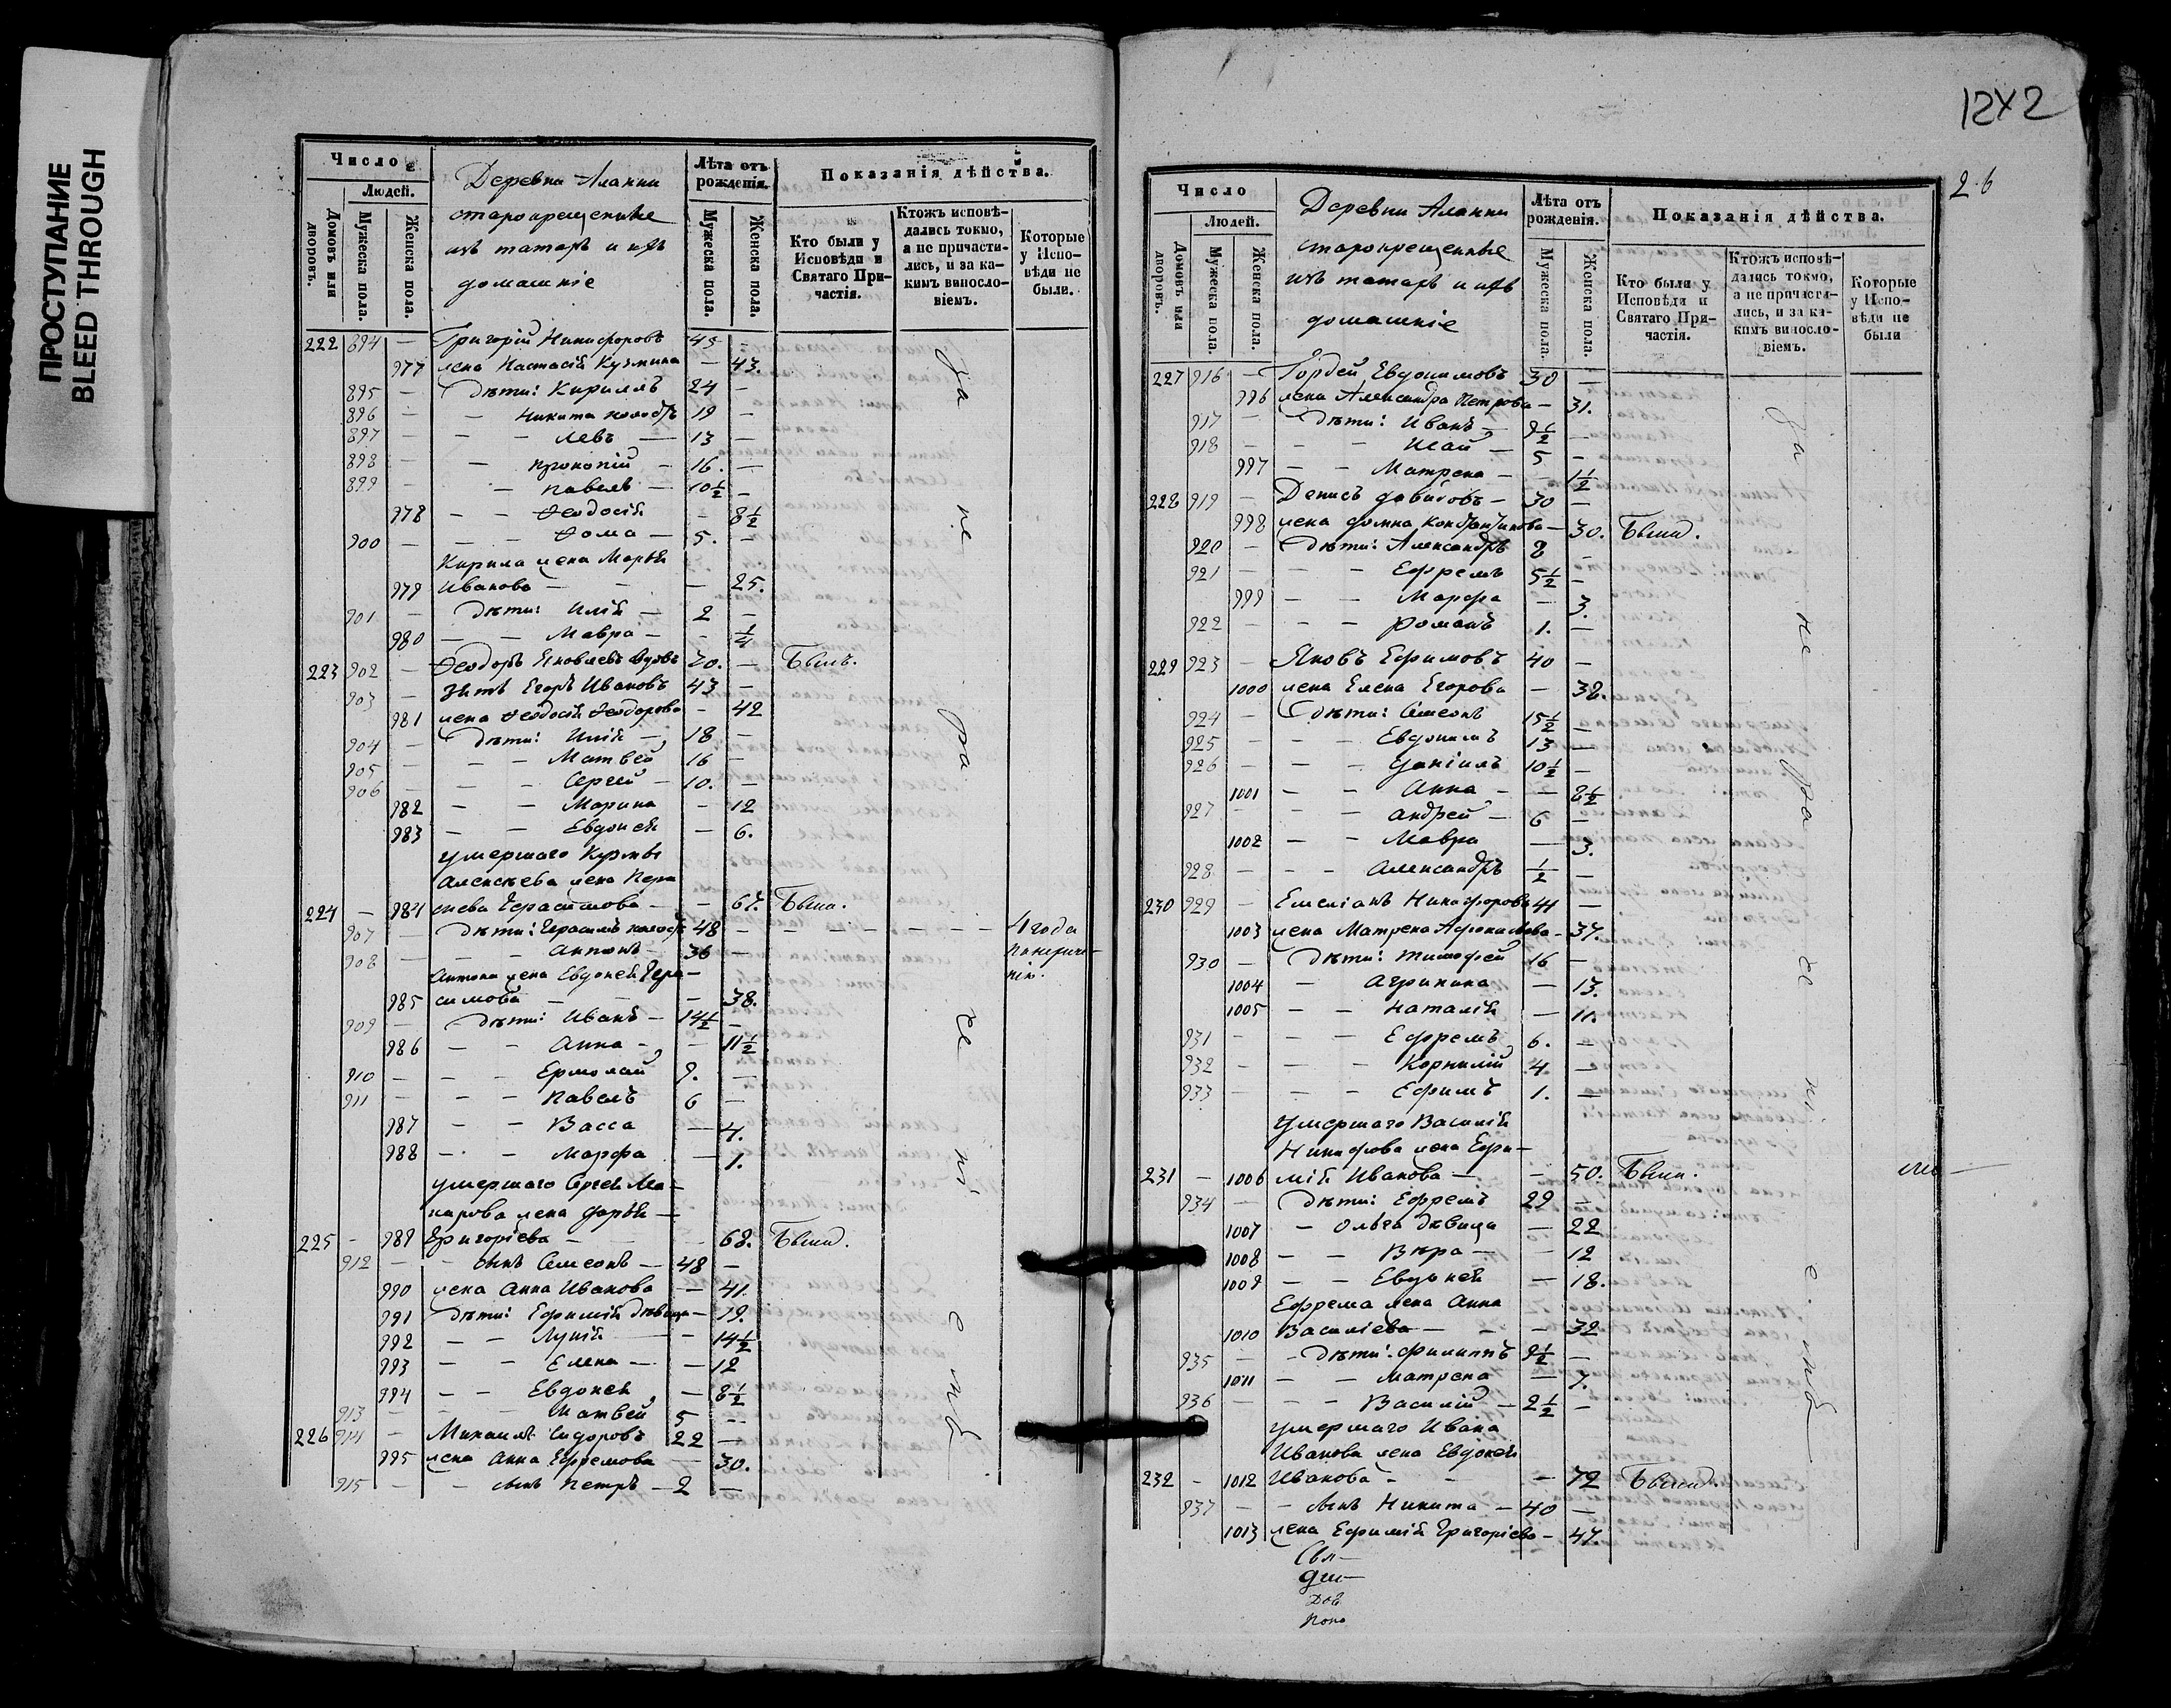 ПРОСТУПАНИЕ
BLEED THROUGH
Число
Людей.
Домовъ или дворовъ.
Мужеска пола.
Женска пола.
Деревни Аланки
старокрещенные
изъ татаръ и ихъ
домашніе
Лѣта отъ рожденія.
Мужеска пола.
Женска пола.
Показанія дѣйства.
Кто были у Исповѣди и Святаго Причастія.
Ктожъ исповѣдались токмо, а не причастились, и за какимъ винословіемъ.
Которые у Исповѣди не были.
222 894 — Григорій Никифоровъ 45 —
977 жена Настасія Кузмина — 43.
895 — Дѣти: Кириллъ 24 —
896 — Никита холостъ 19 —
897 — Левъ — 13 —
898 — Прокопій — 16. —
899 — Павелъ — 10½ —
978 — Ѳеодосія — 8½
900 — Ѳома — 5. —
Кирила жена Марья
979 Иванова — — 25.
901 — Дѣти: Илія — 2 —
980 — Мавра — — ¼
223 902 — Ѳеодоръ Яковлевъ вдовъ 70. — Былъ.
903 — Зять Егоръ Ивановъ 43 —
981 жена Ѳеодосія Ѳеодорова — 42
904 — Дѣти: Илія — 18 —
905 — Матвей 16 —
906 — Сергей — 10. —
982 — Марина — 12
983 — Евдокія — 6.
умершаго Кузмы
Алексѣева жена Пера
224 — 984 скева Герасимова — — 67. Была.
907 — Дѣти: Герасимъ холостъ 48 — 4 года
908 — Антонъ — 36 —
Антона жена Евдокея Гера—
985 симова — 38.
909 — Дѣти: Иванъ — 14½ —
986 — Анна — — 11½
910 — Ермолай 9. —
911 — Павелъ 6 —
987 — Васса — 4.
988 — Марфа — 1.
умершаго Сергея Ма—
карова жена Дарья —
225 — 989 Григоріева — — 68. Была.
912 — сынъ Семеонъ — 48 —
990 жена Анна Иванова — 41.
991 Дѣти: Ефимія дѣвица — 19.
992 — Лукія — 14½
993 — Елена — — 12
994 — Евдокея — 8½
913 — Матвей 5 —
226 914 — Михаилъ Сидоровъ 22 —
995 жена Анна Ефремова — 30.
915 — сынъ Петръ — 2 —
12X2
26
Число
Людей.
Домовъ или дворовъ.
Мужеска пола.
Женска пола.
Деревни Аланки
старокрещенные
изъ татаръ и ихъ
домашніе
Лѣта отъ рожденія.
Мужеска пола.
Женска пола.
Показанія дѣйства.
Кто были у Исповѣди и Святаго Причастія.
Ктожъ исповѣдались токмо, а не причастились, и за какимъ винословіемъ.
Которые у Исповѣди не были
227 916 — Гордей Евдокимовъ 30 —
996 жена Александра Петрова — 31.
917 — Дѣти: Иванъ — 9½ —
918 — Исай — 5 —
997 — Матрена — 1½
228 919 — Денисъ Давидовъ — 30 —
998 жена Домна Константинова — 30. Были.
920 — Дѣти: Александръ 8 —
921 — Ефремъ 5½ —
999 — Марфа — 3.
922 — Романъ 1. —
229 923 — Яковъ Ефимовъ 40 —
1000 жена Елена Егорова — 38.
924 — Дѣти: Семеонъ 15½ —
925 — Евдокимъ 13 —
926 — Даніилъ 10½ —
1001 — Анна — — 8½
927 — Андрей — 6 —
1002 — Мавра — 3.
928 — Александръ ½ —
230 929 — Емеліанъ Никифоровъ 41 —
1003 жена Матрена Афонасьева — 37.
930 — Дѣти: Тимофей 16 —
1004 — Агрипина — 13.
1005 — Наталія — 11.
931 — Ефремъ 6. —
932 — Корнилій 4. —
933 — Ефимъ 1. —
умершаго Василія
Никифова жена Ефи—
231 — 1006 мія Иванова — — 50. Была.
934 — Дѣти: Ефремъ 29 —
1007 — Ольга дѣвица — 22
1008 — Вѣра — — 12
1009 — Евдокея — 18.
Ефрема жена Анна
1010 Василіева — — 32
935 — Дѣти: Филиппъ 9½ —
1011 — Матрена — 7.
936 — Василій — 2½ —
умершаго Ивана
Иванова жена Евдокея
232 — 1012 Иванова — — 72 Была.
937 — сынъ Никита — 40 —
1013 жена Ефимія Григоріева — 47.